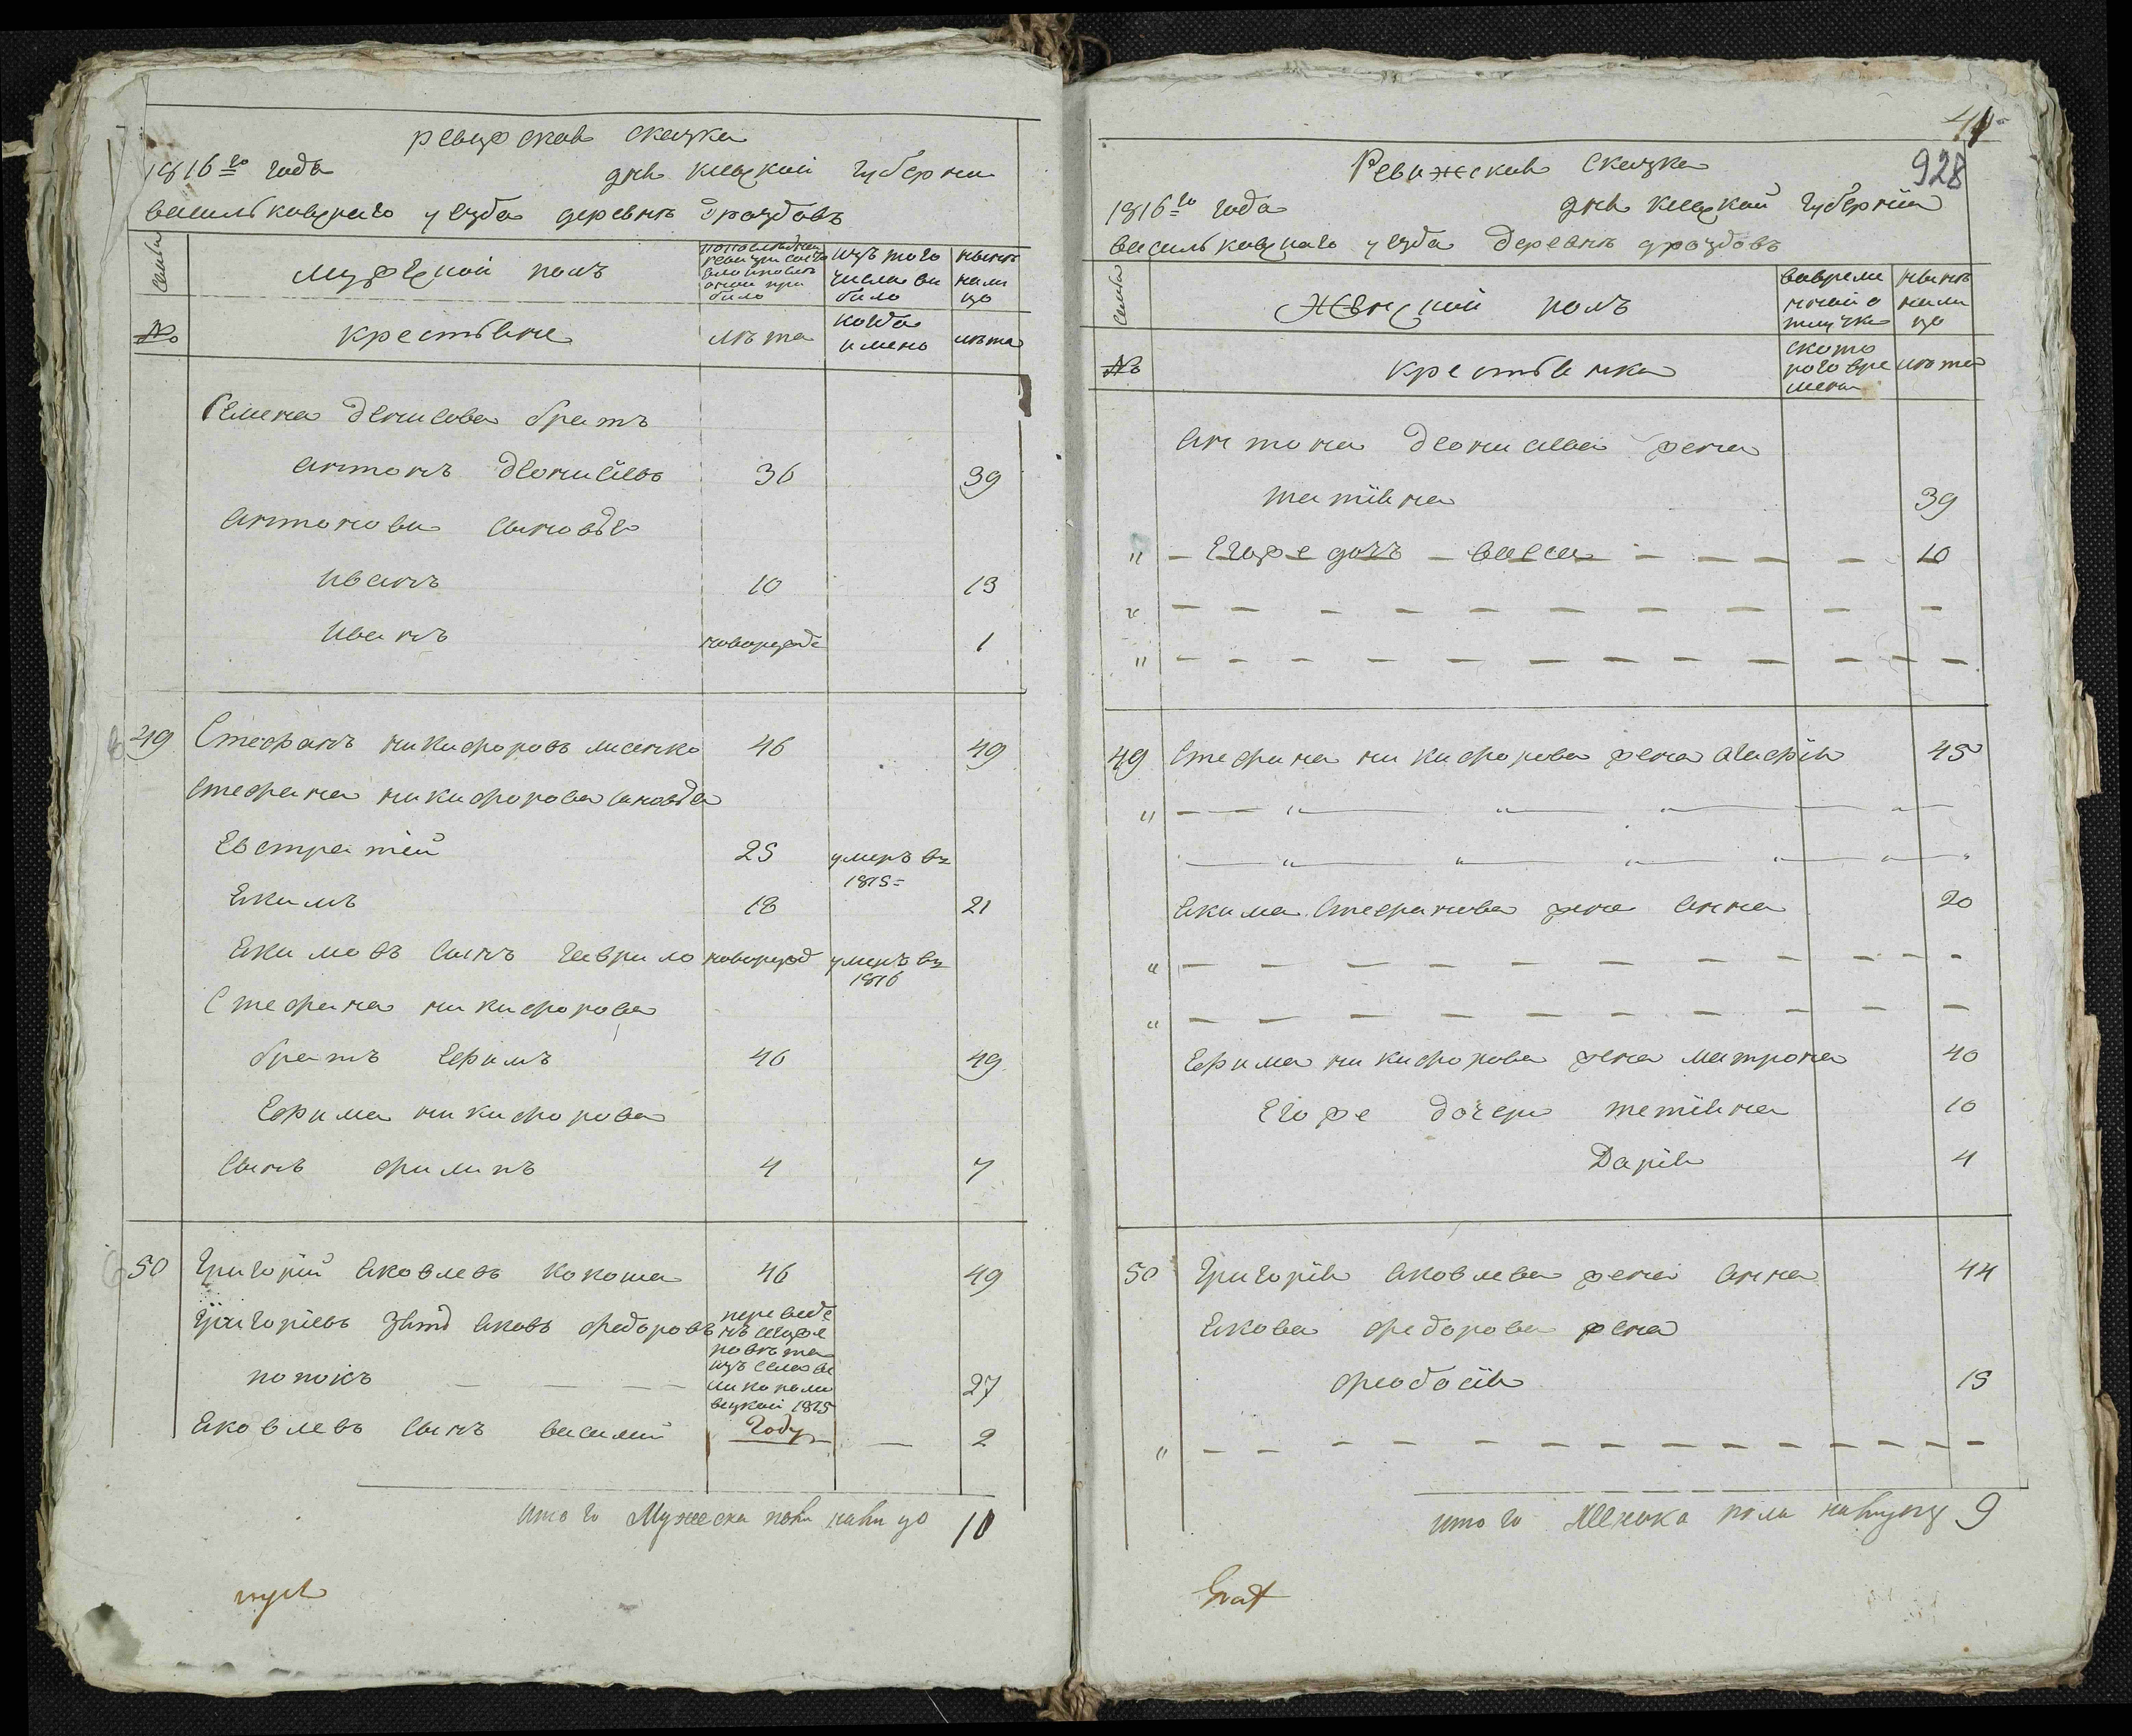 ревизская сказка
1816го года дня киевской губернии
васильковского уезда деревнѣ дроздовъ
семьи
мужеской полъ
по последней ревизии состояло и после оной прибыло
изъ того числа выбыло
нынѣ налицо
№
крестьяне
лѣта
когда имено
лѣта
Семена денисова братъ
антонъ деонисiевъ 36 39
антонови синовья
иванъ 10 13
иванъ новорожде 1
49 Стефанъ никифоровъ лисенко 46 49
Стефана никифорова синовья
Евстратiй 25 умеръ въ 1815
Якимъ 18 21
Якимовъ синъ гаврило новорожд умеръ въ 1816
Стефана никифорова
братъ Ефимъ 46 49
Ефима никифорова
синъ филипъ 4 7
50 Григорiй яковлевъ кокоша 46 49
Григорiевъ зять яковъ федоровъ
попокъ — — — 27
Яковлевъ синъ василiй — 2
1815 Году
итого Мужеска пола налицо 10
41
928
Ревизская Сказка
1816го года дня киевской губернiи
васильковского уезда деревнѣ дроздовъ
семьи
женской полъ
вовременной отлучке
нынѣ налицо
№
крестьянка
с которого времени
лѣта
антона деонисiева жена
татiяна 39
" — Егоже дочь — васса — — — 10
" — — — — — — — — — —
" — — — — — — — — — —
49 Стефана никифорова жена агафiя 45
" — — " — " — " — " —
— " — " — " — " — " — "
Якима Стефанова жена анна 20
" — — — — — — — — — —
" — — — — — — — — — —
Ефима никифорова жена матрона 40
Егоже дочери татiяна 10
Дарiя 4
50 Григорiя яковлева жена анна 44
Якова федорова жена
феодосiя 15
" — — — — — — — — — —
итого женска пола налицо 9